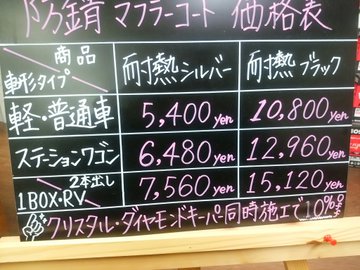 防錆 マフラーコート 価格表
商品
車形タイプ
耐熱シルバー 耐熱ブラック
軽・普通車 5,400yen 10,800yen
ステーションワゴン 6,480yen 12,960yen
2本出し
1BOX・RV 7,560yen 15,120yen
クリスタル・ダイヤモンドキーパー同時施工で10%